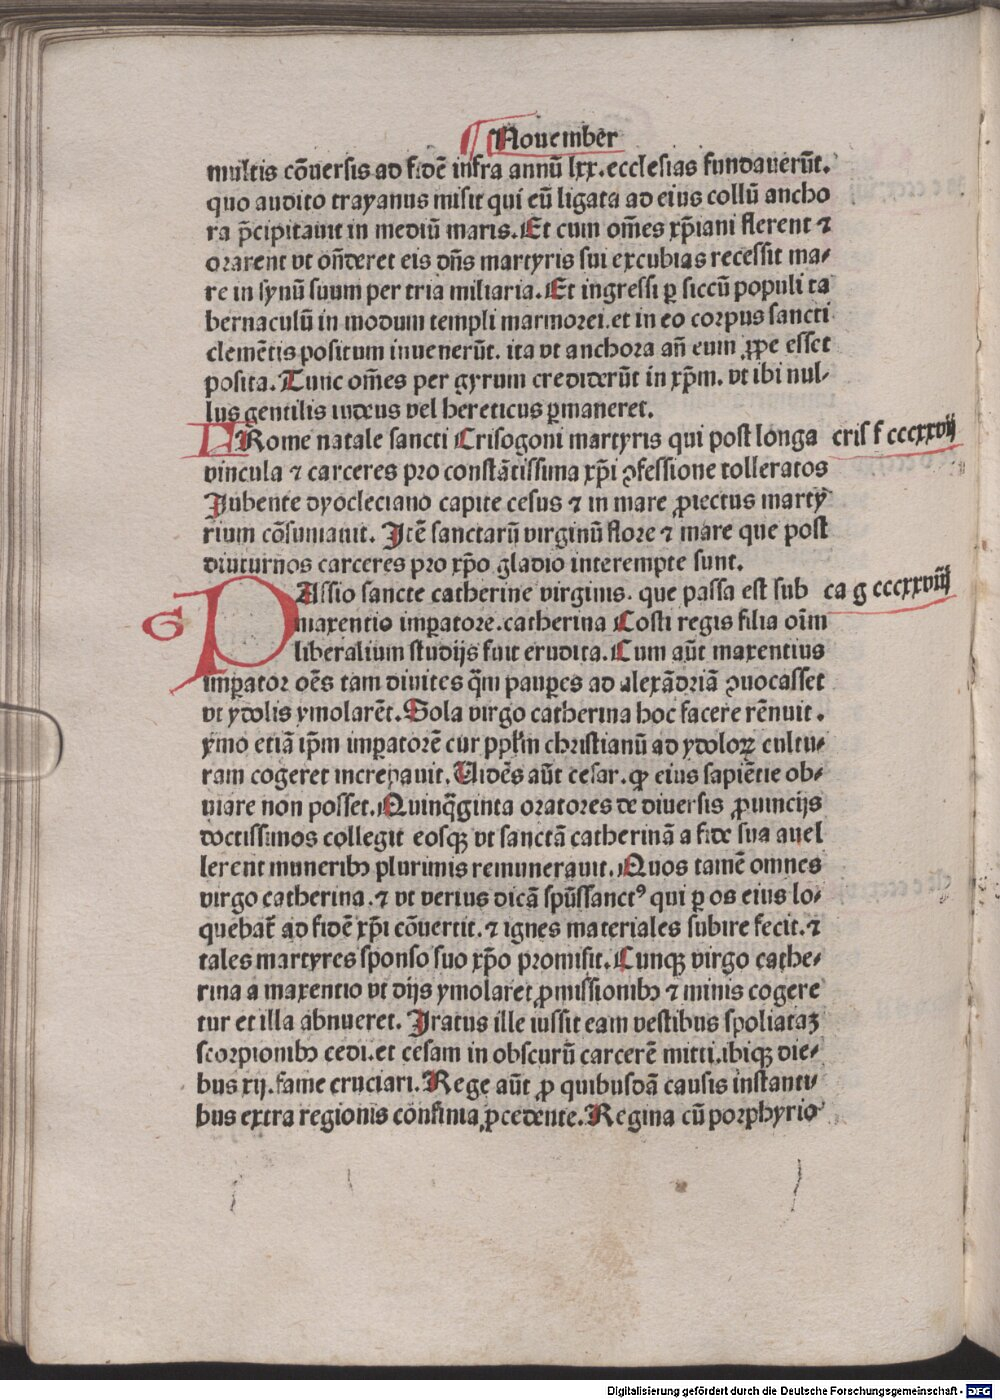 Nouember
multis cōuersis ad fidē infra annū lxx. ecclesias fundauerūt.
quo audito trayanus misit qui eū ligata ad eius collū ancho
ra p̄cipitauit in mediū maris. Et cum om̄es xp̄iani flerent ⁊
orarent vt on̄deret eis dn̄s martyris sui excubias recessit ma⸗
re in synū suum per tria miliaria. Et ingressi ꝑ siccū populi ta
bernaculū in modum templi marmorei. et in eo corpus sancti
clemētis positum inuenerūt. ita vt anchora an̄ eum ꝓpe esset
posita. Tunc om̄es per gyrum crediderūt in xp̄m. vt ibi nul⸗
lus gentilis iudeus vel hereticus ꝑmaneret.
F Rome natale sancti Crisogoni martyris qui post longa cris f cccxxvij
vincula ⁊ carceres pro constātissima xp̄i ꝯfessione tolleratos
Jubente dyocleciano capite cesus ⁊ in mare ꝓiectus marty
rium cōsumauit. Jtē sanctarū virginū flore ⁊ mare que post
diuturnos carceres pro xp̄o gladio interempte sunt.
G PAssio sancte catherine virginis. que passa est sub ca g cccxxviij
maxentio imꝑatore. catherina Costi regis filia oīm
liberalium studijs fuit erudita. Cum aūt maxentius
imꝑator oēs tam diuites q̄m pauꝑes ad alexādriā ꝯuocasset
vt ydolis ymolarēt. Sola virgo catherina hoc facere rēnuit.
ymo etiā ip̄m imꝑatorē cur ppl̄m christianū ad ydoloꝝ cultu⸗
ram cogeret increpauit. Uidēs aūt cesar. ꝙ eius sapiētie ob⸗
uiare non posset. Quinq̄ginta oratores de diuersis ꝓuincijs
doctissimos collegit eosqꝫ vt sanctā catherinā a fide sua auel
lerent muneribꝫ plurimis remunerauit. Quos tamē omnes
virgo catherina. ⁊ vt verius dicā spūssanctꝰ qui ꝑ os eius lo⸗
quebat̄ ad fidē xp̄i cōuertit. ⁊ ignes materiales subire fecit. ⁊
tales martyres sponso suo xp̄o promisit. Cunqꝫ virgo cathe⸗
rina a maxentio vt dijs ymolaret ꝓmissionibꝫ ⁊ minis cogere
tur et illa abnueret. Jratus ille iussit eam vestibus spoliataꝫ
scorpionibꝫ cedi. et cesam in obscurū carcerē mitti. ibiqꝫ die⸗
bus xij. fame cruciari. Rege aūt ꝓ quibusdā causis instanti⸗
bus extra regionis confinia ꝓcedente. Regina cū porphyrio
Digitalisierung gefördert durch die Deutsche Forschungsgemeinschaft - DFG